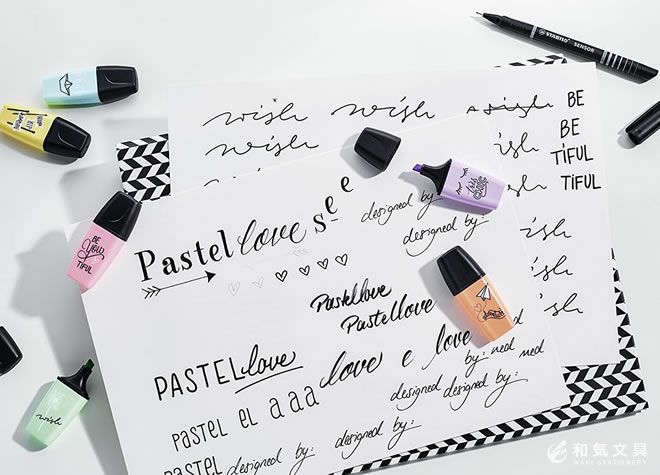 STABILO SENSOR
wish wish wish BE
wish BE
wish TIFUL
TiFUL
wish
wish
wish
BE YOU TIFUL
Pastel love see
designed by:
designed by:
Pastellove
Pastellove
PASTEL love love e love
by: ned med
designed designed by:
pastel el a a a
Pastel designed by: designed by:
wish
和氣文具
WAKI STATIONERY